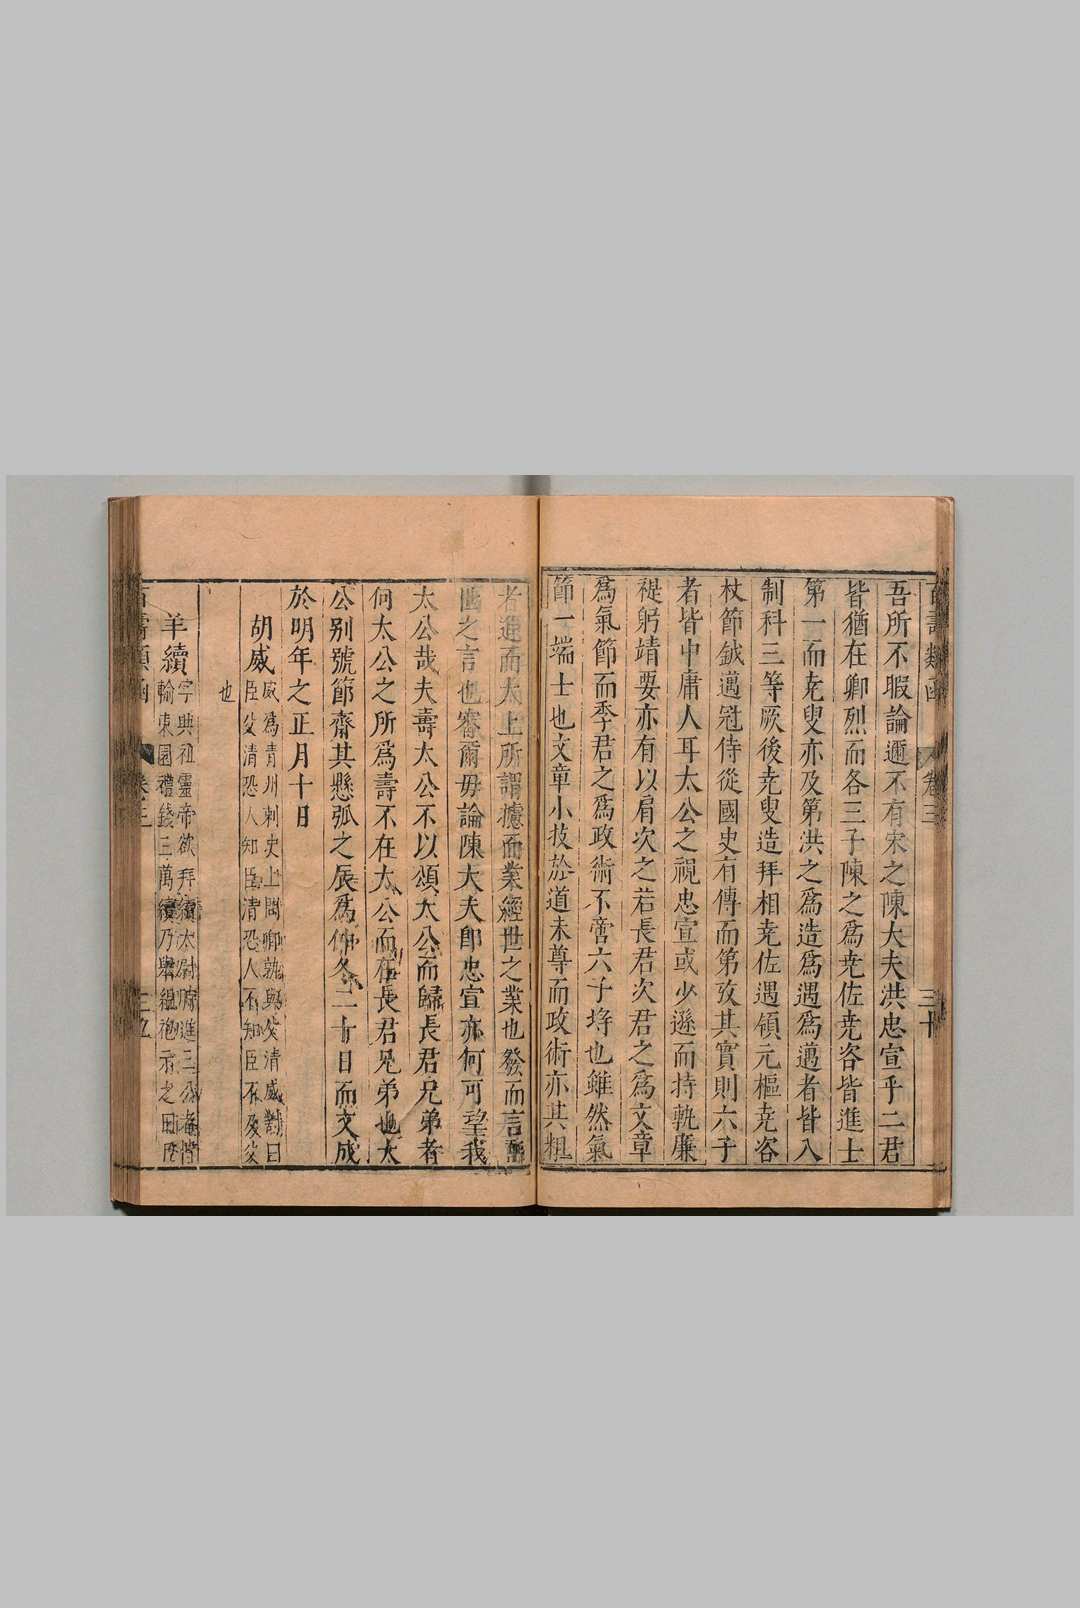 吾所不暇論邇不有宋之陳大夫洪忠宣乎二君
皆猶在卿烈而各三子陳之爲尭佐尭咨皆進士
第一而尭叟亦及第洪之爲造爲遇爲邁者皆入
制科三等厥後尭叟造拜相尭佐遇領元樞尭咨
杖節鉞邁冠侍從國史有傳而第攷其實則六子
者皆中庸人耳太公之視忠宣或少遜而持執廉
禔躬靖要亦有以肩次之若長君次君之爲文章
爲氣節而季君之爲政術不啻六子埒也雖然氣
節一端士也文章小技於道未尊而政術亦其粗
者迺而太上所謂攄而業經世之業也發而言
之言也審爾毋論陳大夫卽忠宣亦何可望我
太公哉夫壽太公不以頌太公而歸長君兄弟者
何太公之所爲壽不在太公而在長君兄弟也太
公别號節齋其懸弧之辰爲仲冬二十日而文成
於明年之正月十日
胡威 威爲青州刺史上問卿孰與父清威對曰
臣父清恐人知臣清恐人不知臣不及父
也
羊續 字典祖靈帝欲拜續太尉時進三公者皆
輸東園禮錢三萬續乃舉緼袍示之曰臣
卷三
三十